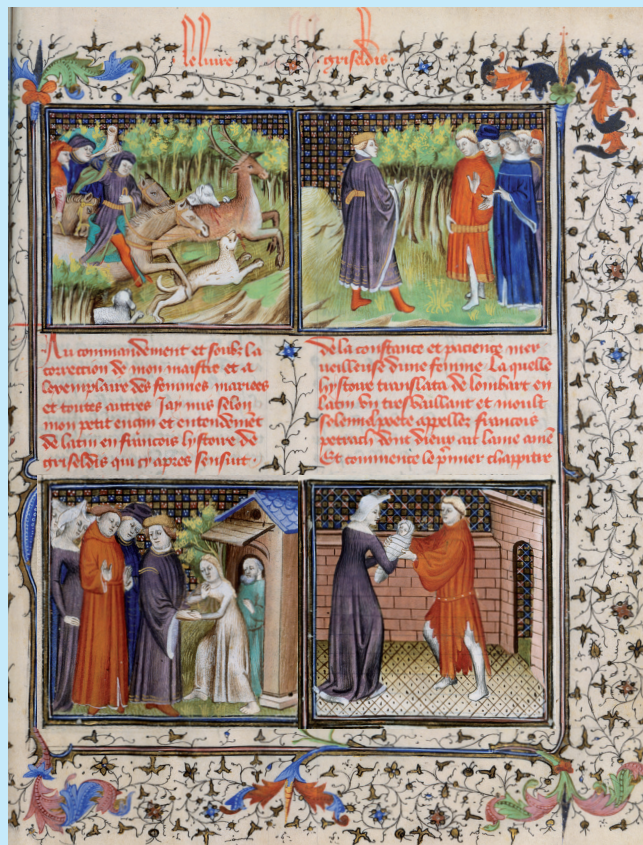 Le livre
griseldis
Au commandement et soubz la
correction de mon maistre et a
lexemplaire des femmes mariees
et toutes autres Jay mis selon
mon petit engin et entendemēt
de latin en francois lystoire de
griseldis qui cy apres sensuit
de la constance et pacience mer
ueilleuse dune femme La quelle
hystoire translata de lombart en
latin vn tresvaillant et moult
solennel poete appellez francois
petrach dont dieux ait lame amē
Et commence le pmier chappitre